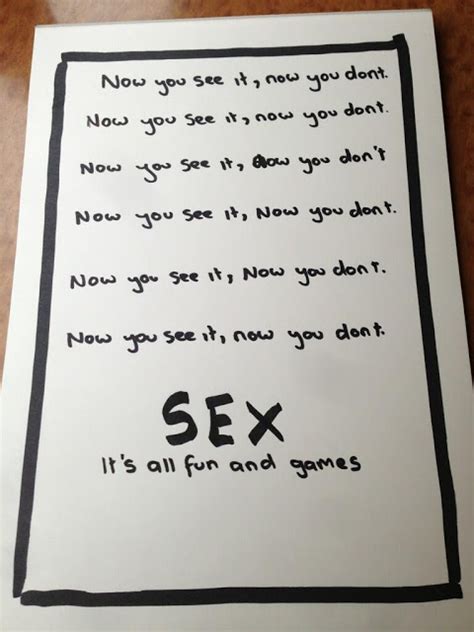 Now you see it, now you dont.
Now you see it, now you dont.
Now you see it, now you don't
Now you see it, Now you dont.
Now you see it, Now you don't.
Now you see it, now you dont.
SEX
It's all fun and games